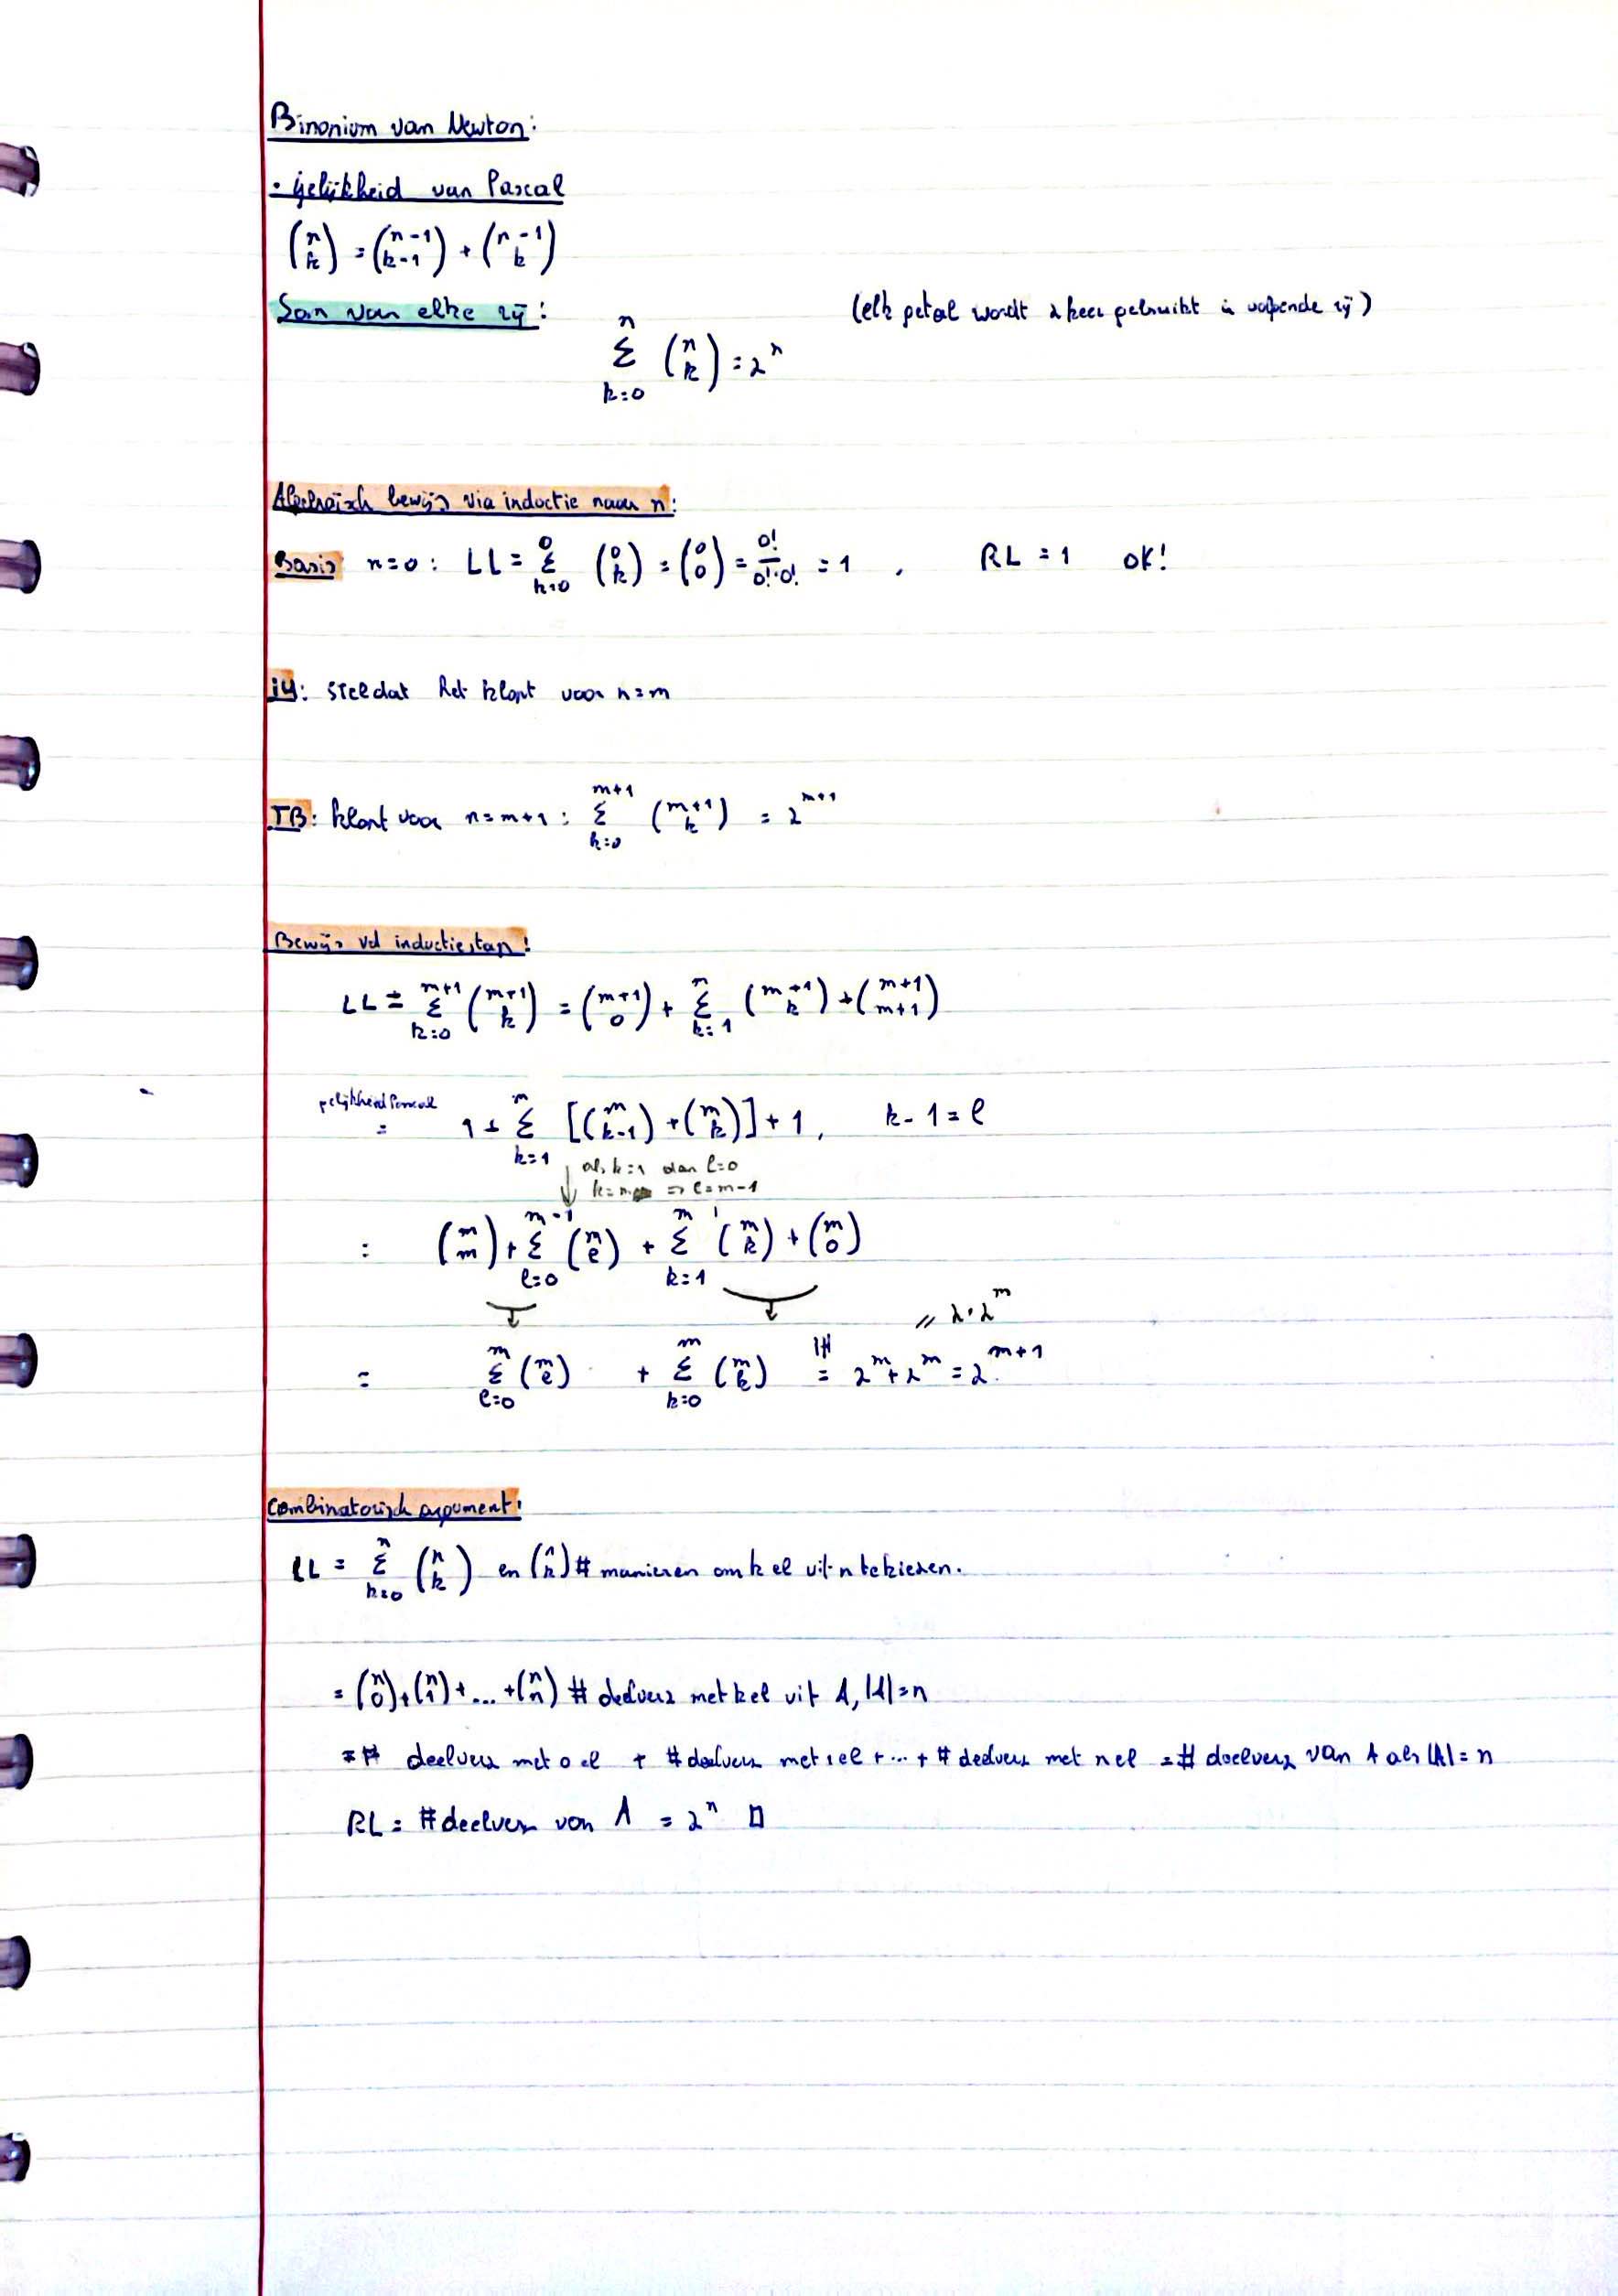 Binonium van Newton:
- gelijkheid van Pascal
(n k) = (n-1 k-1) + (n-1 k)
Som van elke rij: (elk getal wordt 2 keer gebruikt in volgende rij)
n Σ k=0 (n k) = 2^n
Algebraïsch bewijs via inductie naar n:
Basis n=0: LL = 0 Σ k=0 (0 k) = (0 0) = 0!/0!·0! = 1 , RL = 1 OK!
IH: stel dat het klopt voor n=m
TB: klopt voor n=m+1: m+1 Σ k=0 (m+1 k) = 2^m+1
Bewijs vd inductiestap:
LL = m+1 Σ k=0 (m+1 k) = (m+1 0) + m Σ k=1 (m+1 k) + (m+1 m+1)
gelijkheid Pascal = 1 + m Σ k=1 [(m k-1) + (m k)] + 1, k-1 = l
↓ als k=1 dan l=0
k=m => l=m-1
= (m m) + m-1 Σ l=0 (m l) + m Σ k=1 (m k) + (m 0)
// 2·2^m
= m Σ l=0 (m l) + m Σ k=0 (m k) IH = 2^m + 2^m = 2^m+1
Combinatorisch argument:
LL = n Σ k=0 (n k) en (n k) # manieren om k el uit n te kiezen.
= (n 0) + (n 1) + ... + (n n) # deelverz met k el uit A, |A|=n
= # deelverz met 0 el + # deelverz met 1 el + ... + # deelverz met n el = # deelverz van A als |A| = n
RL = # deelverz van A = 2^n □